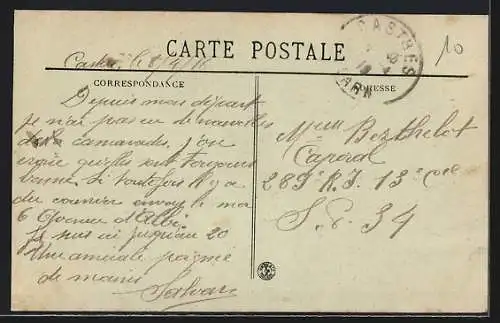 CARTE POSTALE
CASTRES
TARN
10
Castres le 8/4/16
CORRESPONDANCE
ADRESSE
Depuis mon départ
je n'ai pas eu de nouvelles
des camarades, j'ose
croire qu'elles sont toujours
bonnes. Si toutefois il y a
du courrier envoyez le moi
6 Avenue d'Albi
Je suis ici jusqu'au 20
Une amicale poignée
de mains
Salvan
Berthelot
Caporal
289e R.I. 13e Cie
S.P. 34